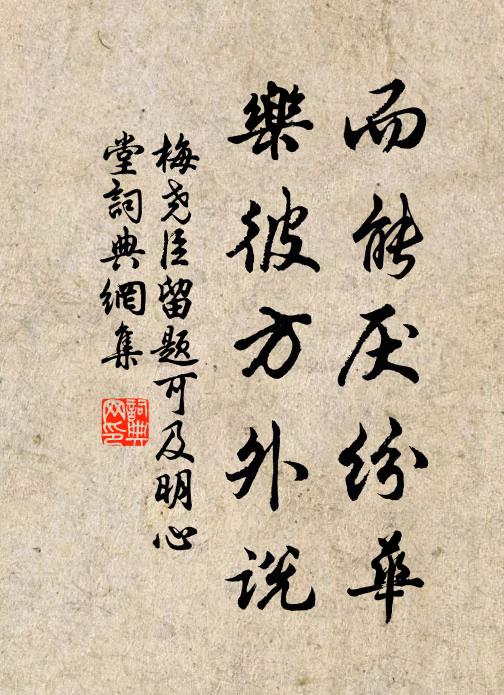 而能厌纷華
樂彼方外说
梅尧臣留题可及明心
堂詞典網集
詞典网印